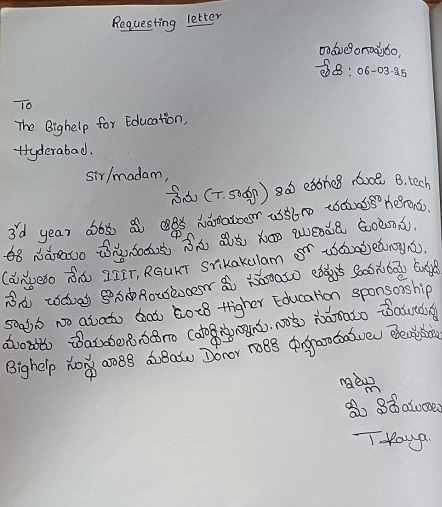 Requesting letter
రామలింగాపురం,
తేది : 06-03-25
To
The Bighelp for Education,
Hyderabad.
Sir/madam,
నేను (T. కావ్య) 8వ తరగతి నుండి B.tech
3rd year వరకు మీ ఆర్థిక సహాయంతో చక్కగా చదువుకోగలిగాను.
ఈ సహాయం చేస్తున్నందుకు నేను మీకు సదా ఋణపడి ఉంటాను.
ప్రస్తుతం నేను IIIT, RGUKT Srikakulam లో చదువుతున్నాను.
నేను చదువు కొనసాగించుటలో మీ సహాయం ఎక్కువ అవసరమై ఉన్నది
కావున నా యందు దయ ఉంచి Higher Education sponsorship
మంజూరు చేయవలసినదిగా ప్రార్థిస్తున్నాను. నాకు సహాయం చేయుచున్న
Bighelp సంస్థ వారికి మరియు Donor గారికి ధన్యవాదములు తెలుపుతున్నాను
ఇట్లు
మీ విధేయురాలు
T. Kavya.